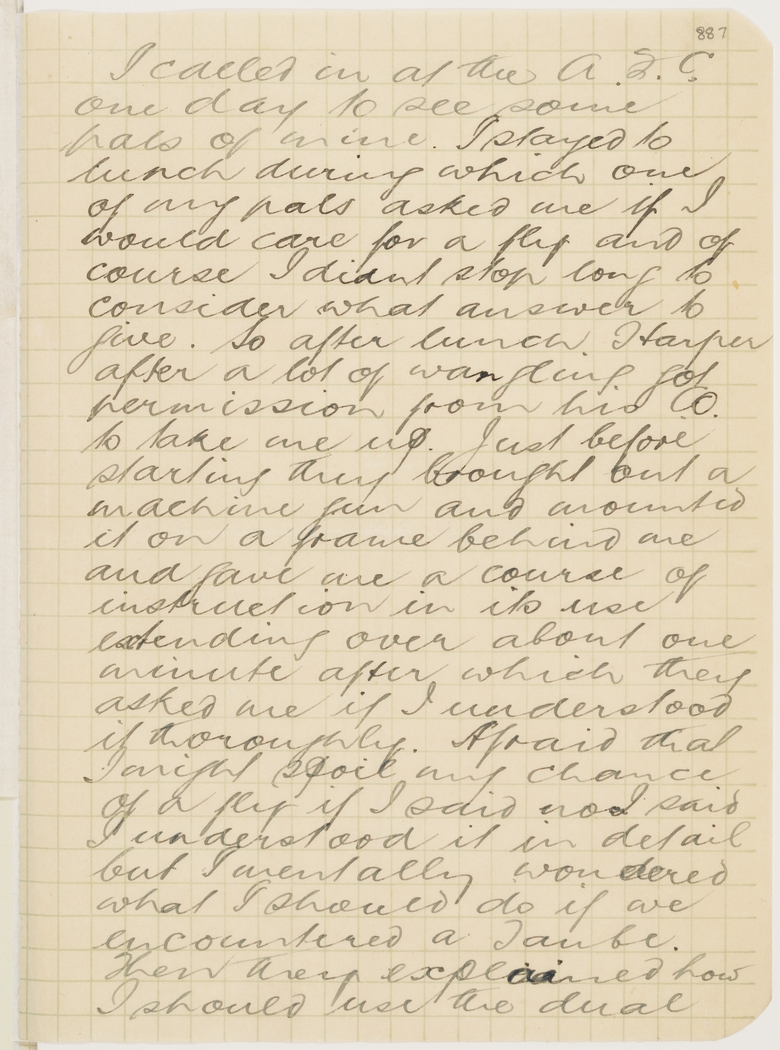 887
I called in at the A.F.C.
one day to see some
pals of mine. I stayed to
lunch during which one
of my pals asked me if I
would care for a fly and of
course I didnt stop long to
consider what answer to
give. So after lunch Harper
after a lot of wangling got
permission from his CO.
to take me up. Just before
starting they brought out a
machine gun and mounted
it on a frame behind me
and gave me a course of
instruction in its use
extending over about one
minute after which they
asked me if I understood
it thoroughly. Afraid that
I might spoil my chance
of a fly if I said no I said
I understood it in detail
but I mentally wondered
what I should do if we
encountered a Taube.
Then they explained how
I should use the dual